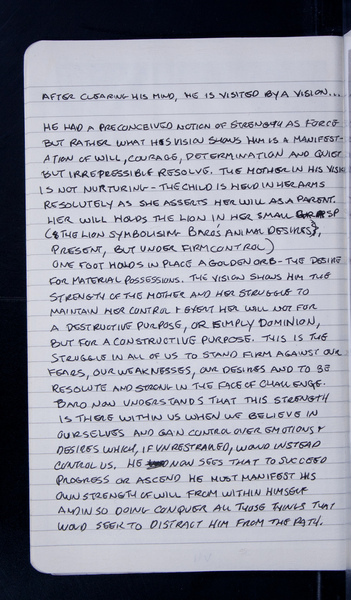 AFTER CLEARING HIS MIND, HE IS VISITED BY A VISION...
HE HAD A PRECONCEIVED NOTION OF STRENGTH AS FORCE
BUT RATHER WHAT HIS VISION SHOWS HIM IS A MANIFEST-
ATION OF WILL, COURAGE, DETERMINATION AND QUIET
BUT IRREPRESSIBLE RESOLVE. THE MOTHER IN HIS VISION
IS NOT NURTURING - THE CHILD IS HELD IN HER ARMS
RESOLUTELY AS SHE ASSERTS HER WILL AS A PARENT.
HER WILL HOLDS THE LION IN HER SMALL GRASP
(& THE LION SYMBOLISING BARD'S ANIMAL DESIRES,
PRESENT, BUT UNDER FIRM CONTROL)
ONE FOOT HOLDS IN PLACE A GOLDEN ORB - THE DESIRE
FOR MATERIAL POSSESSIONS. THE VISION SHOWS HIM THE
STRENGTH OF THE MOTHER AND HER STRUGGLE TO
MAINTAIN HER CONTROL & EXERT HER WILL NOT FOR
A DESTRUCTIVE PURPOSE, OR SIMPLY DOMINION,
BUT FOR A CONSTRUCTIVE PURPOSE. THIS IS THE
STRUGGLE IN ALL OF US TO STAND FIRM AGAINST OUR
FEARS, OUR WEAKNESSES, OUR DESIRES AND TO BE
RESOLUTE AND STRONG IN THE FACE OF CHALLENGE.
BARD NOW UNDERSTANDS THAT THIS STRENGTH
IS THERE WITHIN US WHEN WE BELIEVE IN
OURSELVES AND GAIN CONTROL OVER EMOTIONS &
DESIRES WHICH, IF UNRESTRAINED, WOULD INSTEAD
CONTROL US. HE NOW SEES THAT TO SUCCEED
PROGRESS OR ASCEND HE MUST MANIFEST HIS
OWN STRENGTH OF WILL FROM WITHIN HIMSELF
AND IN SO DOING CONQUER ALL THOSE THINGS THAT
WOULD SEEK TO DISTRACT HIM FROM THE PATH.